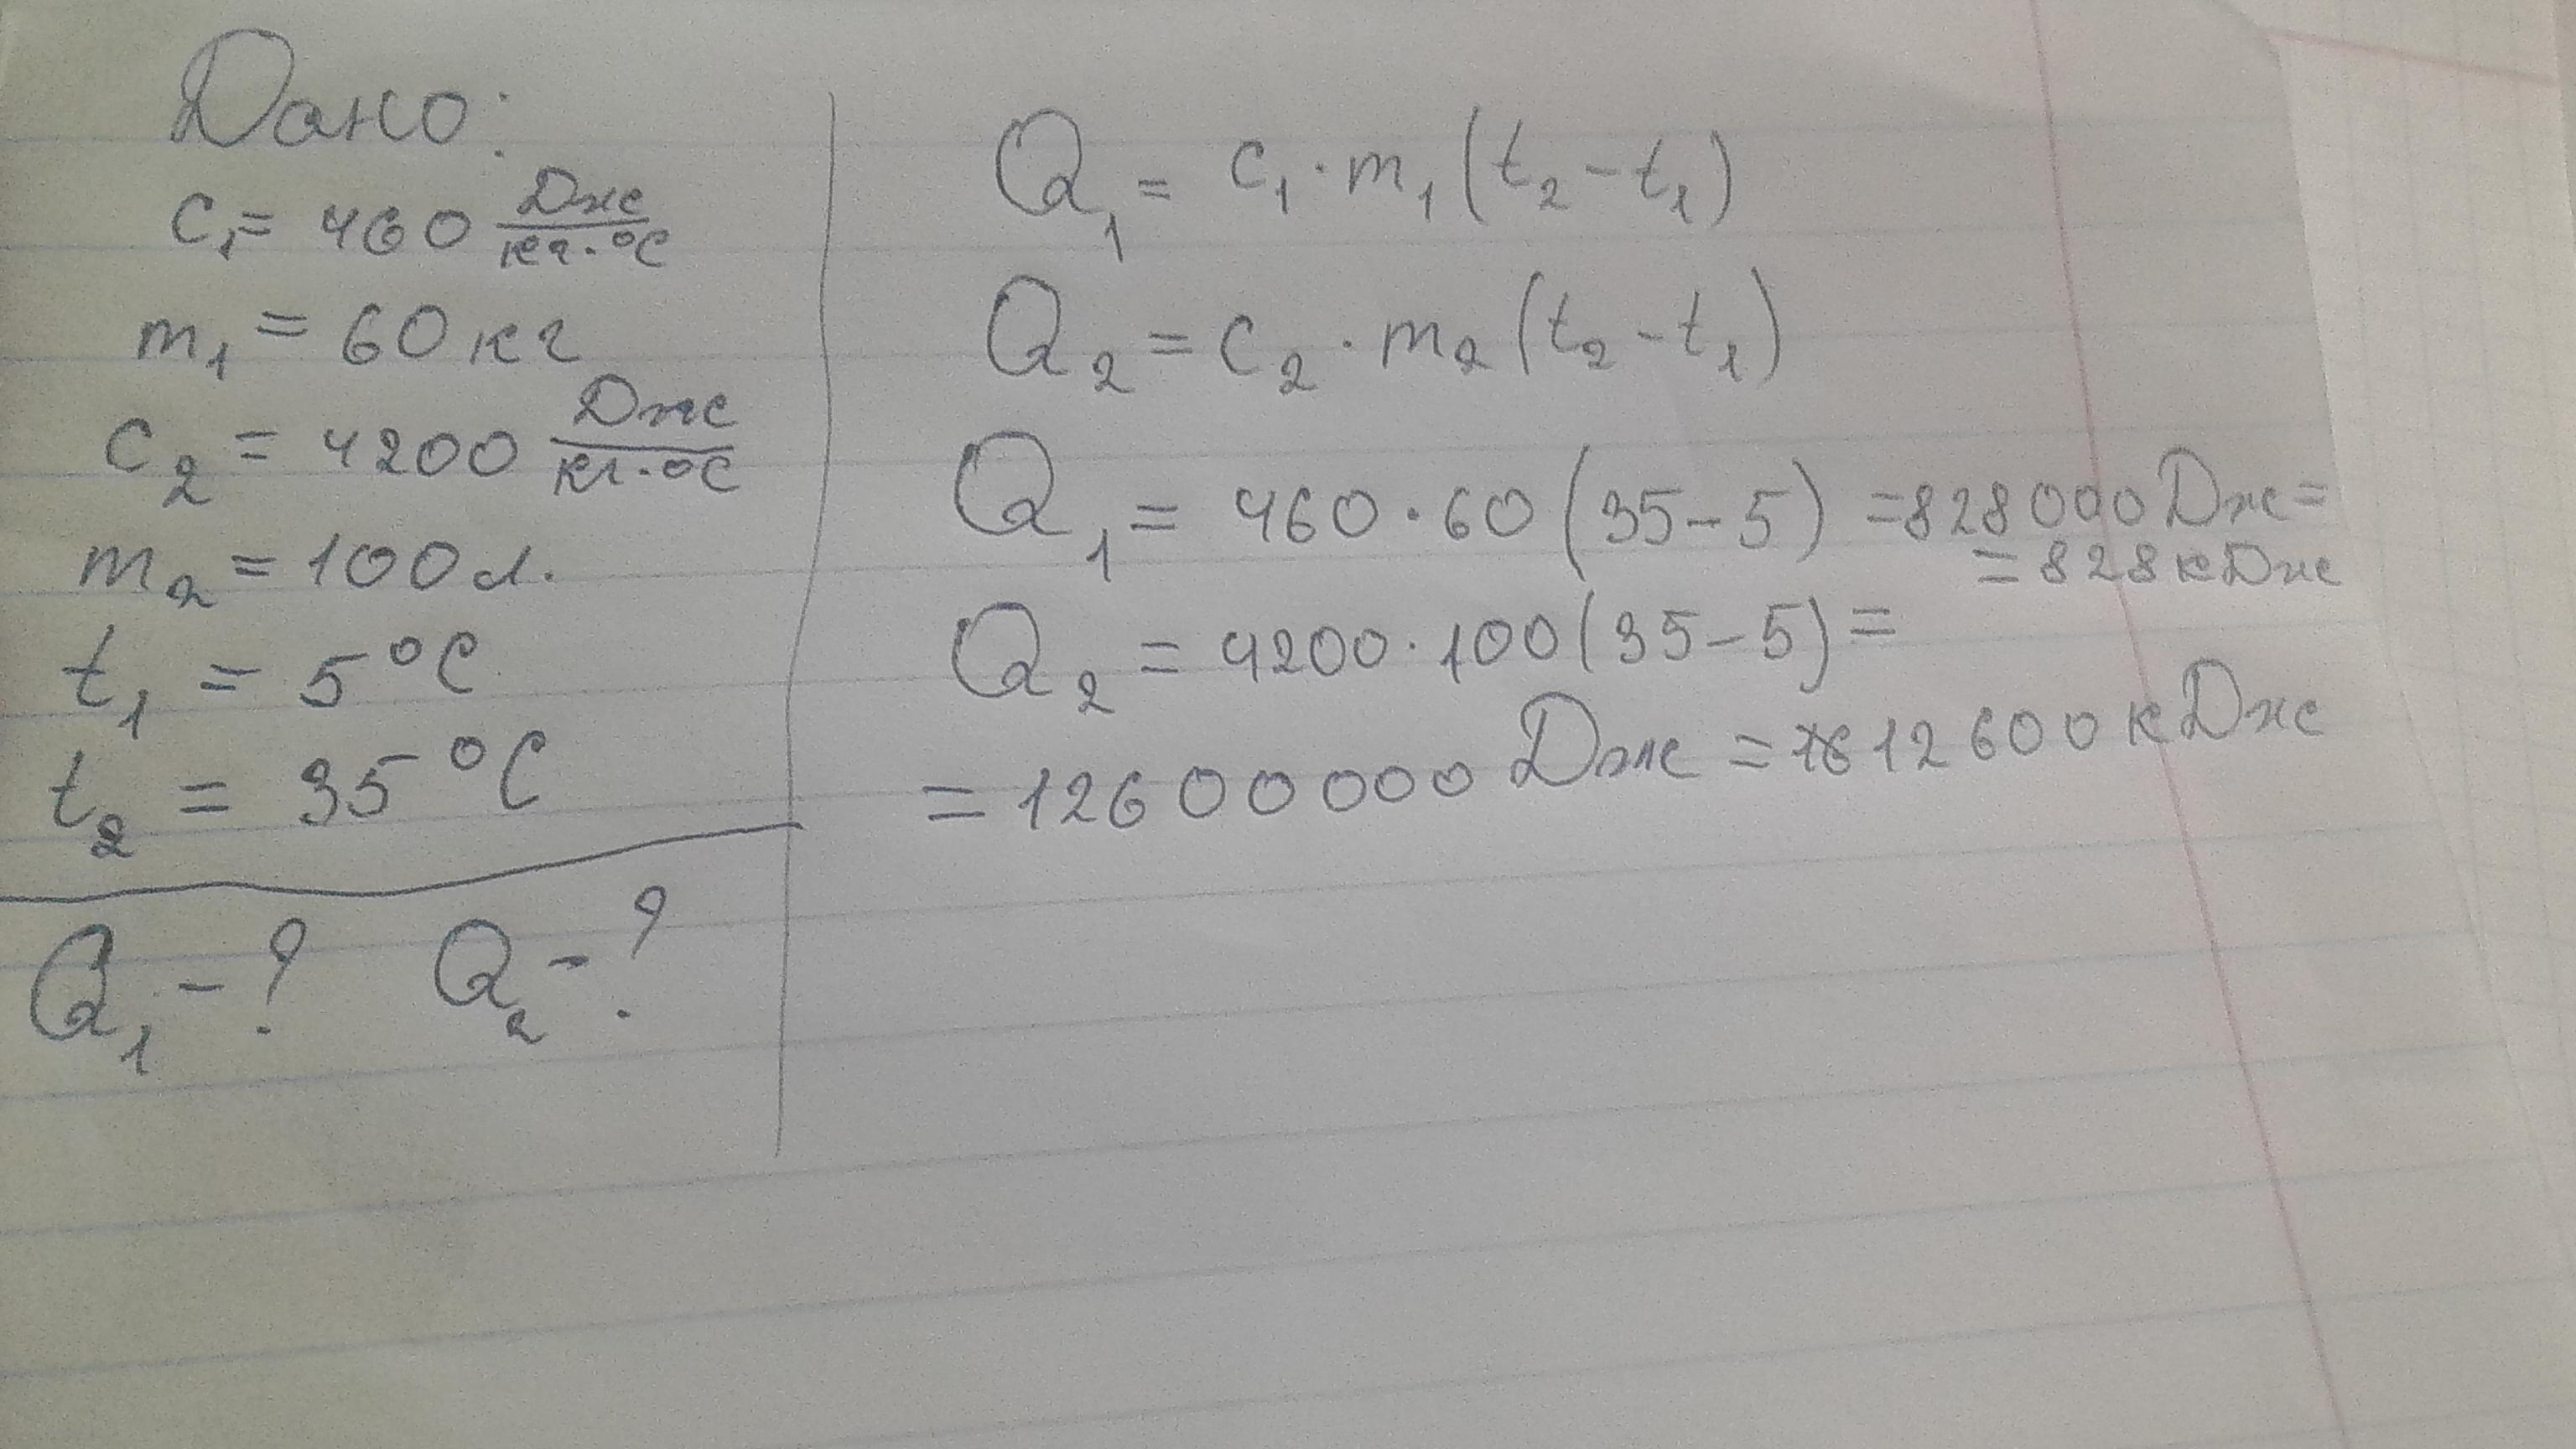 Дано:
c₁ = 460 Дж/кг·°C
m₁ = 60 кг
c₂ = 4200 Дж/кг·°C
m₂ = 100 л.
t₁ = 5 °C
t₂ = 35 °C
Q₁ - ? Q₂ - ?
Q₁ = c₁ · m₁ (t₂ - t₁)
Q₂ = c₂ · m₂ (t₂ - t₁)
Q₁ = 460 · 60 (35 - 5) = 828000 Дж =
= 828 кДж
Q₂ = 4200 · 100 (35 - 5) =
= 12600000 Дж = 12600 кДж